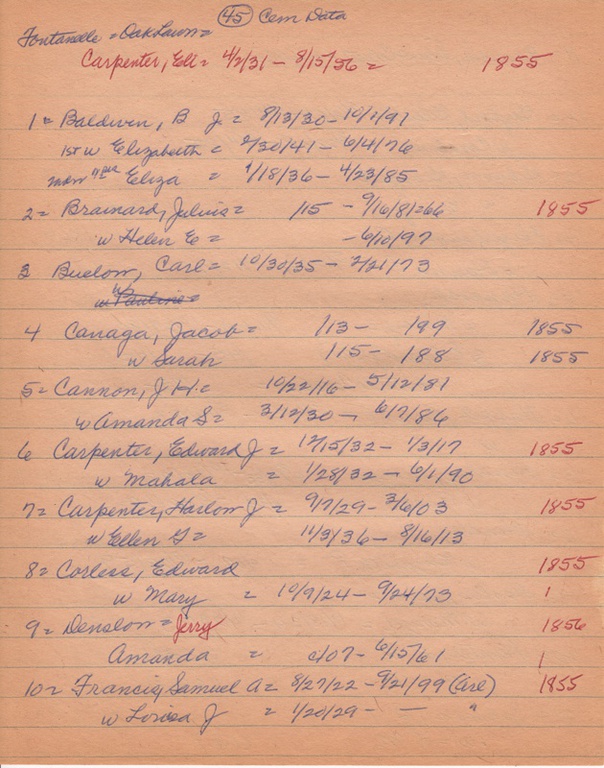 (45) Cem Data
Fontanelle = Oak Lawn =
Carpenter, Eli = 4/2/31 - 8/15/56 = 1855
1 = Baldwin, B J = 8/13/30 - 10/1/97
1st w Elizabeth = /30/41 - 6/4/76
Eliza = /18/36 - 4/23/85
2 = Brainard, Julius = /15 - 9/16/81=66 1855
w Helen E = - 6/10/97
3 Buelow, Carl = 10/30/35 - 2/21/73
w Pauline =
4 Canaga, Jacob = /13 - /99 1855
w Sarah /15 - /88 1855
5 = Cannon, J H = 10/22/16 - 5/12/81
w Amanda S = 3/12/30 - 6/7/86
6 Carpenter, Edward J = 12/15/32 - 1/3/17 1855
w Mahala = 1/28/32 - 6/1/90
7 = Carpenter, Harlow J = 9/7/29 - 3/6/03 1855
w Ellen G = 11/3/36 - 8/16/13
8 = Corless, Edward 1855
w Mary = 10/9/24 - 9/24/73 1
9 = Denslow = Jerry 1856
Amanda = c/07 - 6/15/61 1
10 = Francis, Samuel A = 8/27/22 - 9/21/99 1855
w J = 1/20/29 - — "